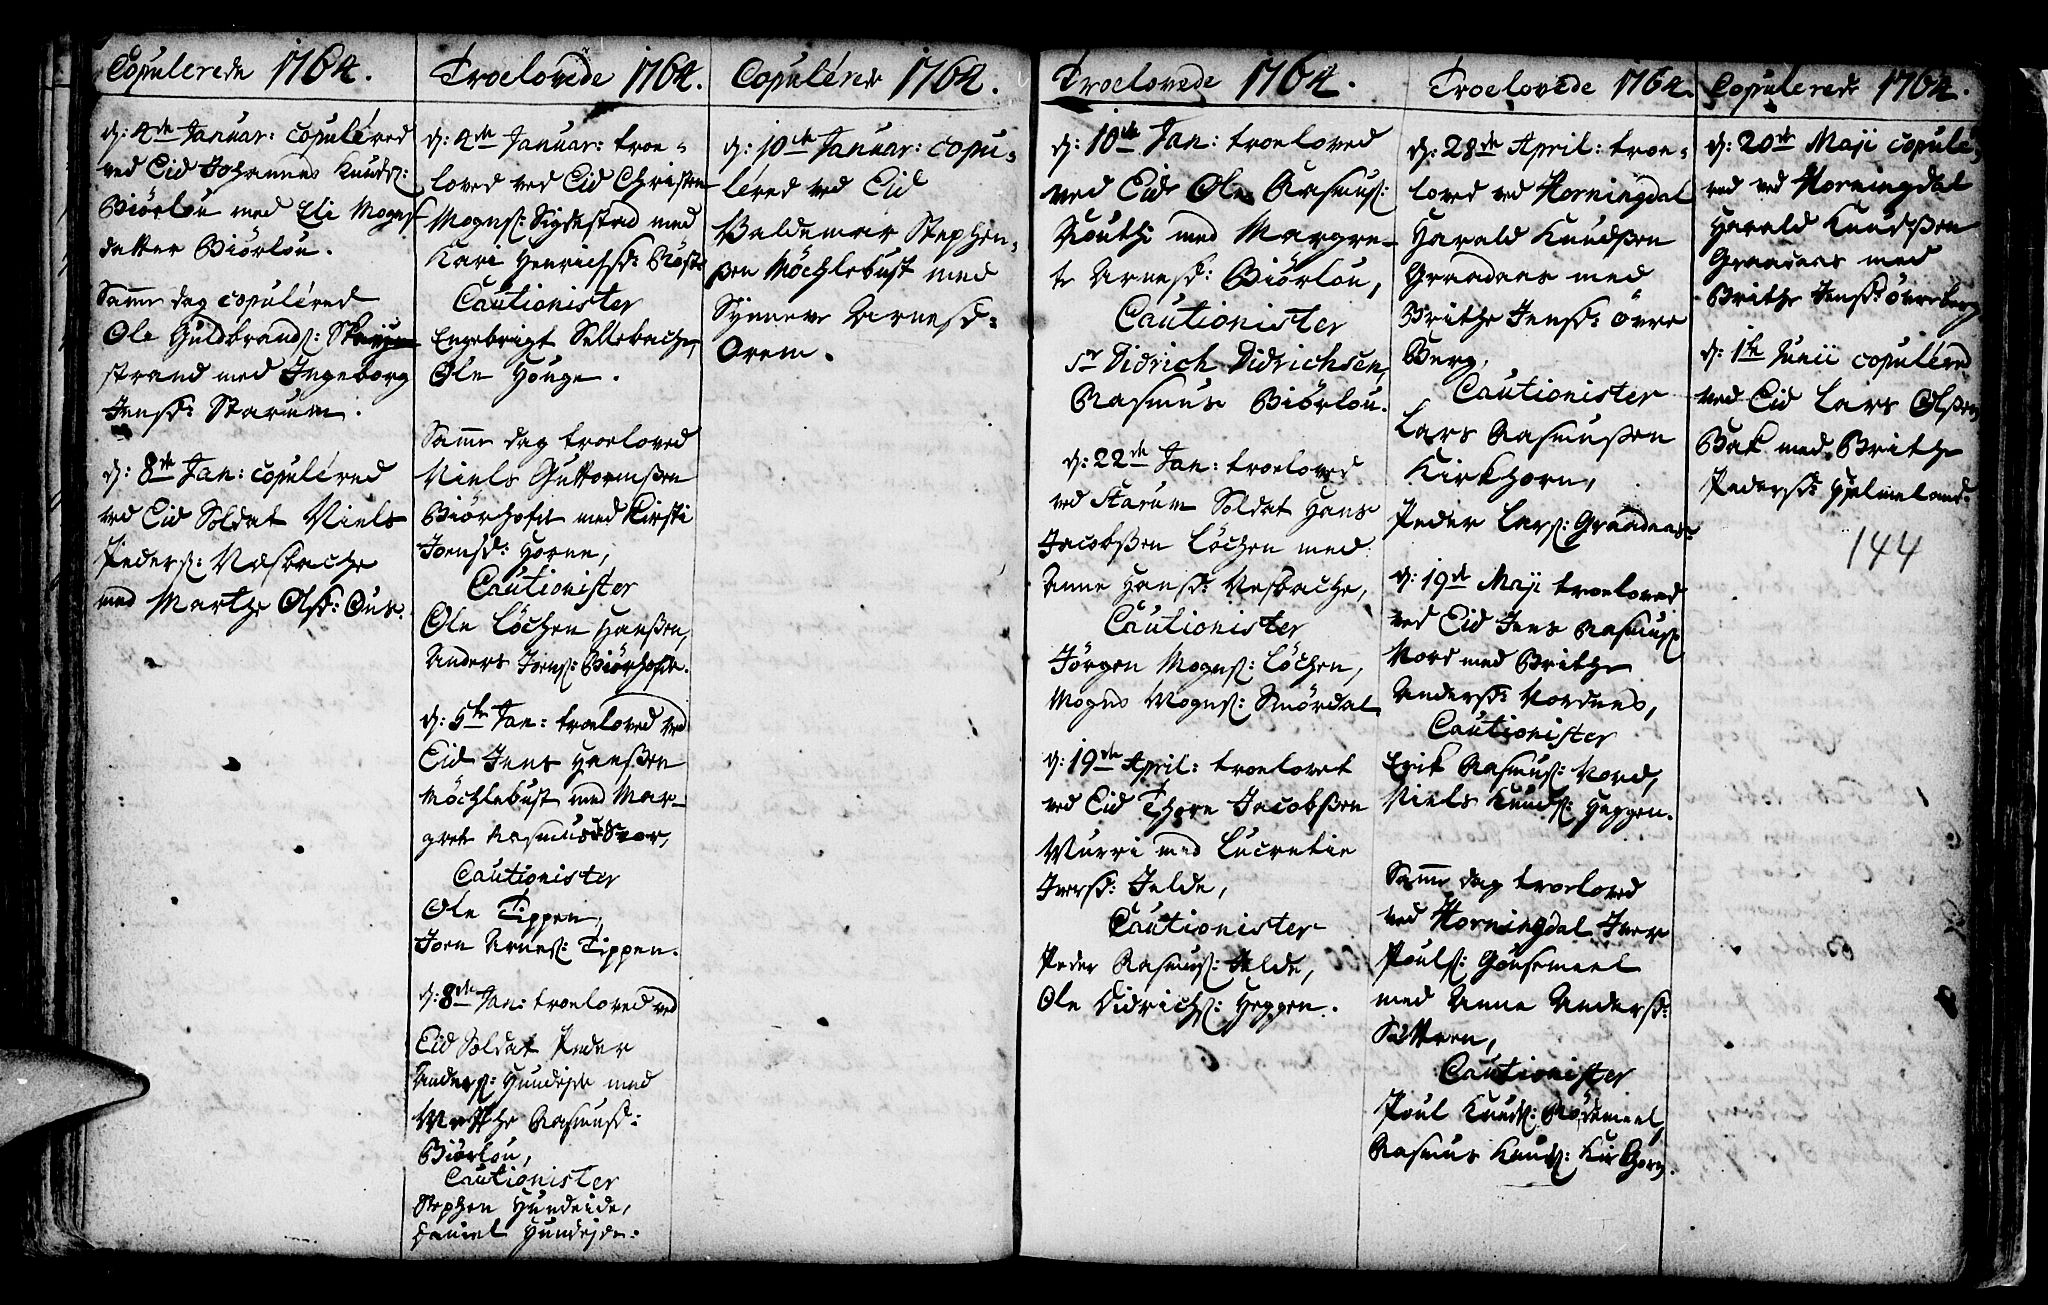 Copulerede 1764.
d: 4de Januar: copulered
ved Eid Johannes Knuds:
Biörlou med Eli Mogns
datter Biörlou.
Samme dag copulered
Ole Guldbrands:
strand med Ingeborg
Jensd: Starum.
d: 8de Jan: copulered
ved Eid Soldat Niels
Peders: Næsbache
med Marthe Olsd: Ous.
Troelovede 1764.
d: 4de Januar: troe-
loved ved Eid Christen
Mogns: Sigdestad med
Kari Henrichsd:
Cautionister
Engebrigt Sællebache,
Ole Houge.
Samme dag troeloved
Niels Guttormsen
Biörhofde med Kirsti
Joensd: Horne,
Cautionister
Ole Löchen Hanssen,
Anders Joens: Biörhofde.
d: 5te Jan: troeloved ved
Eid Jens Hanssen
Möchlebust med Mar-
grete Rasmusd: Svor,
Cautionister
Ole Tippen,
Joen Arnes: Tippen.
d: 8de Jan: troeloved ved
Eid Soldat Peder
Anders: Hundejde med
Marthe Rasmusd:
Biörlou,
Cautionister
Stephen Hundeide,
Daniel Hundejde.
Copulerede 1764.
d: 10de Januar: copu-
lered ved Eid
Valdemar Stephen-
ssen Möchlebust med
Synneve Arnesd:
Orem.
Troelovede 1764.
d: 10de Jan: troeloved
ved Eid Ole Rasmus:
Nouthi med Margre-
te Arnesd: Biörlou,
Cautionister
Sr Didrich Didrichsen,
Rasmus Biörlou.
d: 22de Jan: troeloved
ved Starum Soldat Hans
Jacobssen Löchen med
Anne Hansd: Næsbache,
Cautionister
Jörgen Mogns: Löchen,
Mogns Mogns: Smördal
d: 19de April: troelovet
ved Eid Thore Jacobssen
Murri med Lucretie
Iversd: Ielde,
Cautionister
Peder Rasmus: Ielde,
Ole Didrichs: Heggen.
Troelovede 1764.
d: 28de April: troe-
loved ved Horningdal
Harald Knudssen
Graadaas med
Brithe Jensd: övre
Berg,
Cautionister
Lars Rasmussen
Kirkhorn,
Peder Lars: Graadaas.
d: 19de Maji troeloved
ved Eid Jens Rasmus:
Nord med Brithe
Andersd: Nordnes,
Cautionister
Erik Rasmus: Nord,
Niels Knuds: Heggen.
Samme dag troeloved
ved Horningdal Iver
Pouls: Gousemeel
med Anne Andersd:
Sættren,
Cautionister
Poul Knuds:
Rasmus Knuds: Kirkhorn.
Copulerede 1764.
d: 20de Maji copule-
red ved Horningdal
Harald Knudssen
Graadaas med
Brithe Jensd: övreberg
d: 1te Junii copulered
ved Eid Lars Olssen
Bak med Brithe
Pedersd: Hjelmeland.
144